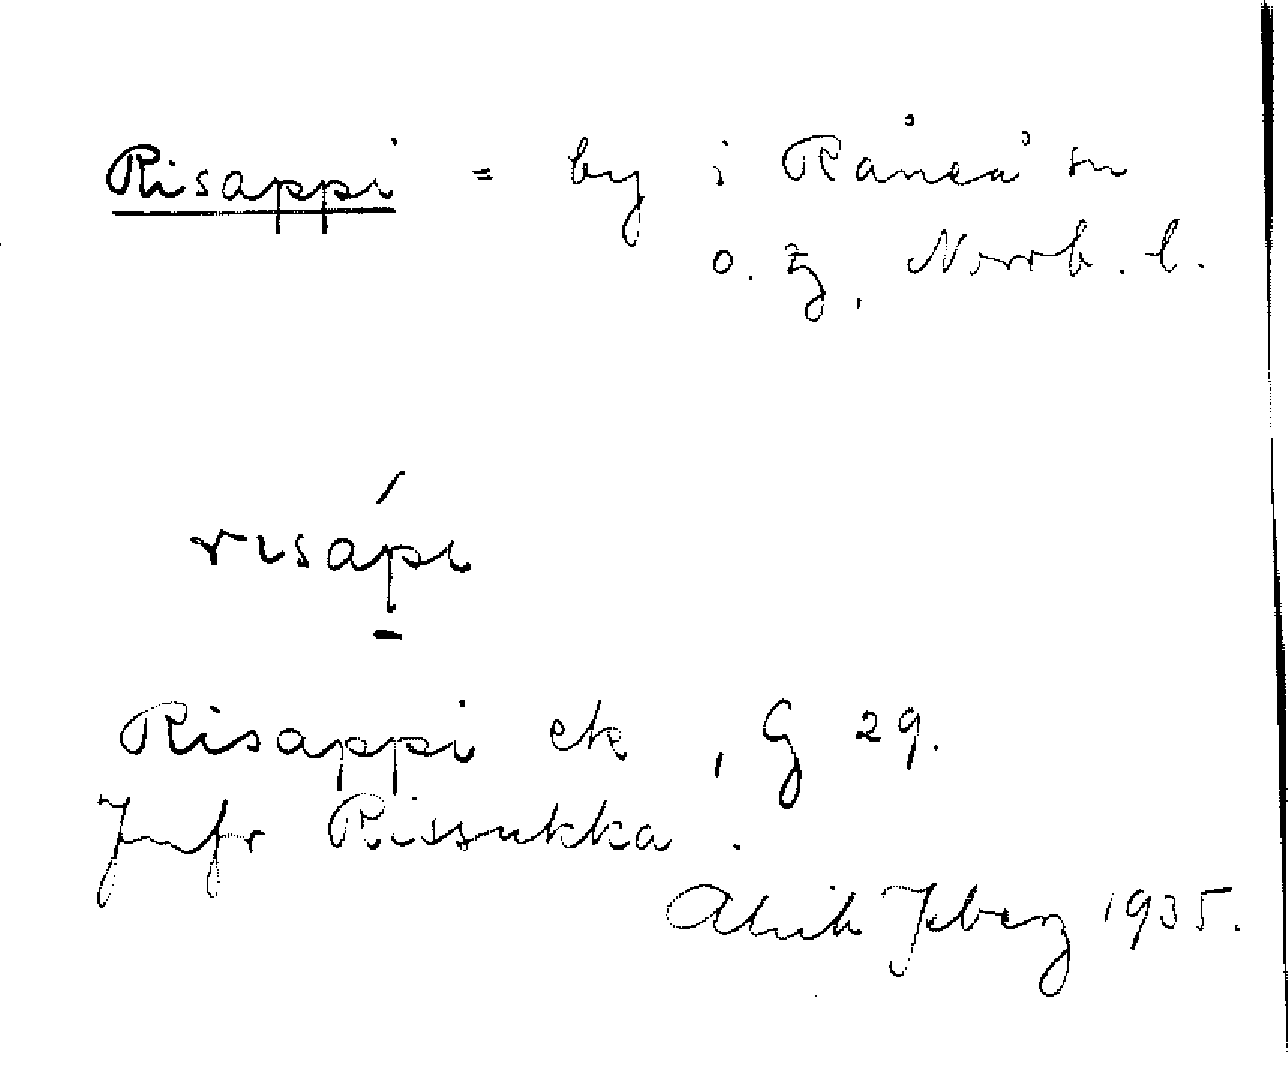 Risappi = by i Råneå sn
o. tg, Norrb. l.
risápi
Risappi ek, G 29.
Jmfr Rissukka.
Alrik Isberg 1935.